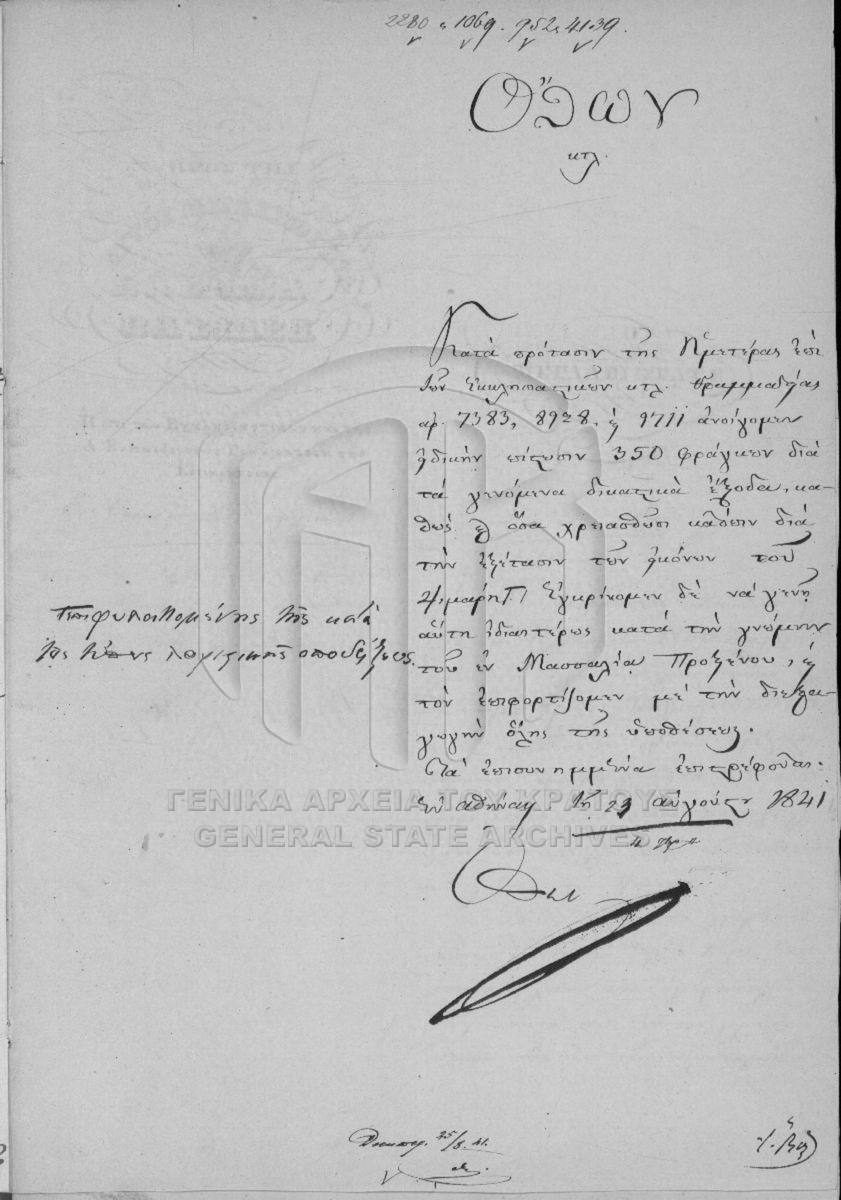 2280, 1069. 952, 4139.
Ὄθων
κτλ.
Κατὰ πρότασιν τῆς Ἡμετέρας ἐπὶ
τῶν Ἐκκλησιαστικῶν κτλ. Γραμματείας
αρ. 7383, 8928, & 9711 ἀνοίγομεν
εἰδικὴν πίστωσιν 350 φράγκων διὰ
τὰ γενόμενα δικαστικὰ ἔξοδα, κα-
θὼς & ὅσα χρειασθῶσι κατόπιν διὰ
τὴν ἐξέτασιν τῶν εἰκόνων τοῦ
Ἐγκρίνομεν δὲ νὰ γενῇ
αὕτη ἰδιαιτέρως κατὰ τὴν γνώμην
τοῦ ἐν Μασσαλίᾳ Προξένου, &
τὸν ἐπιφορτίζομεν μὲ τὴν διεξα-
γωγὴν ὅλης τῆς ὑποθέσεως.
Τὰ ἐπισυνημμένα ἐπιστρέφονται.
Ἐν Ἀθήναις τῇ 23 αὐγούστου 1841
ἐπιφυλαττομένης τῆς κατὰ
τοὺς τύπους λογιστικῆς ἀποδείξεως.
25/8. 41.
ΓΕΝΙΚΑ ΑΡΧΕΙΑ ΤΟΥ ΚΡΑΤΟΥΣ
GENERAL STATE ARCHIVES